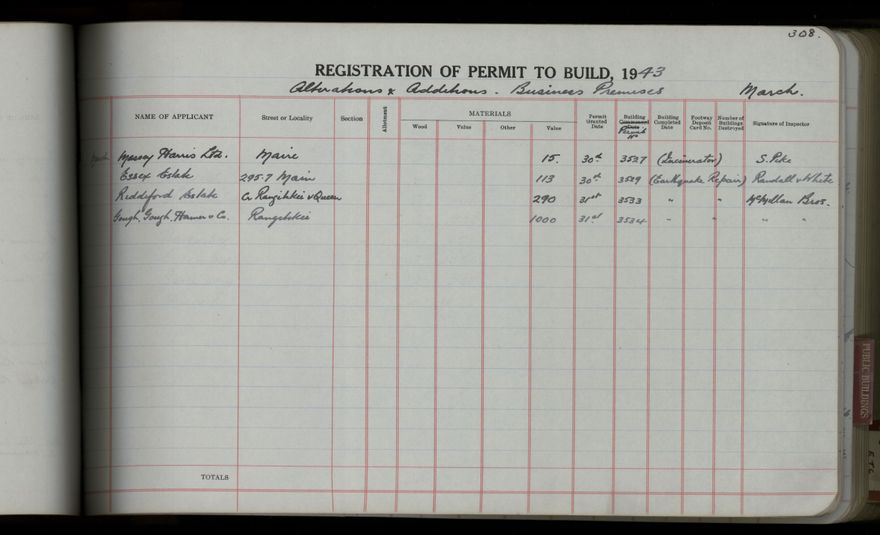 308.
REGISTRATION OF PERMIT TO BUILD, 1943
Alterations & Additions. Business Premises March.
NAME OF APPLICANT Street or Locality Section Allotment MATERIALS Permit Granted Date Building Commenced Date Permit No Building Completed Date Footway Deposit Card No. Number of Buildings Destroyed Signature of Inspector
Wood Value Other Value
March Massey Harris Ltd. Maire 15. 30th 3527 (Incinerator) S. Pike
Essex Estate 295-7 Main 113 30th 3529 (Earthquake Repair) Randall & White
Riddiford Estate Cr Rangitikei & Queen 290 31st 3533 " " McMillan Bros.
Gough, Gough, Hamer & Co. Rangitikei 1000 31st 3534 " " " "
TOTALS
PUBLIC BUILDINGS